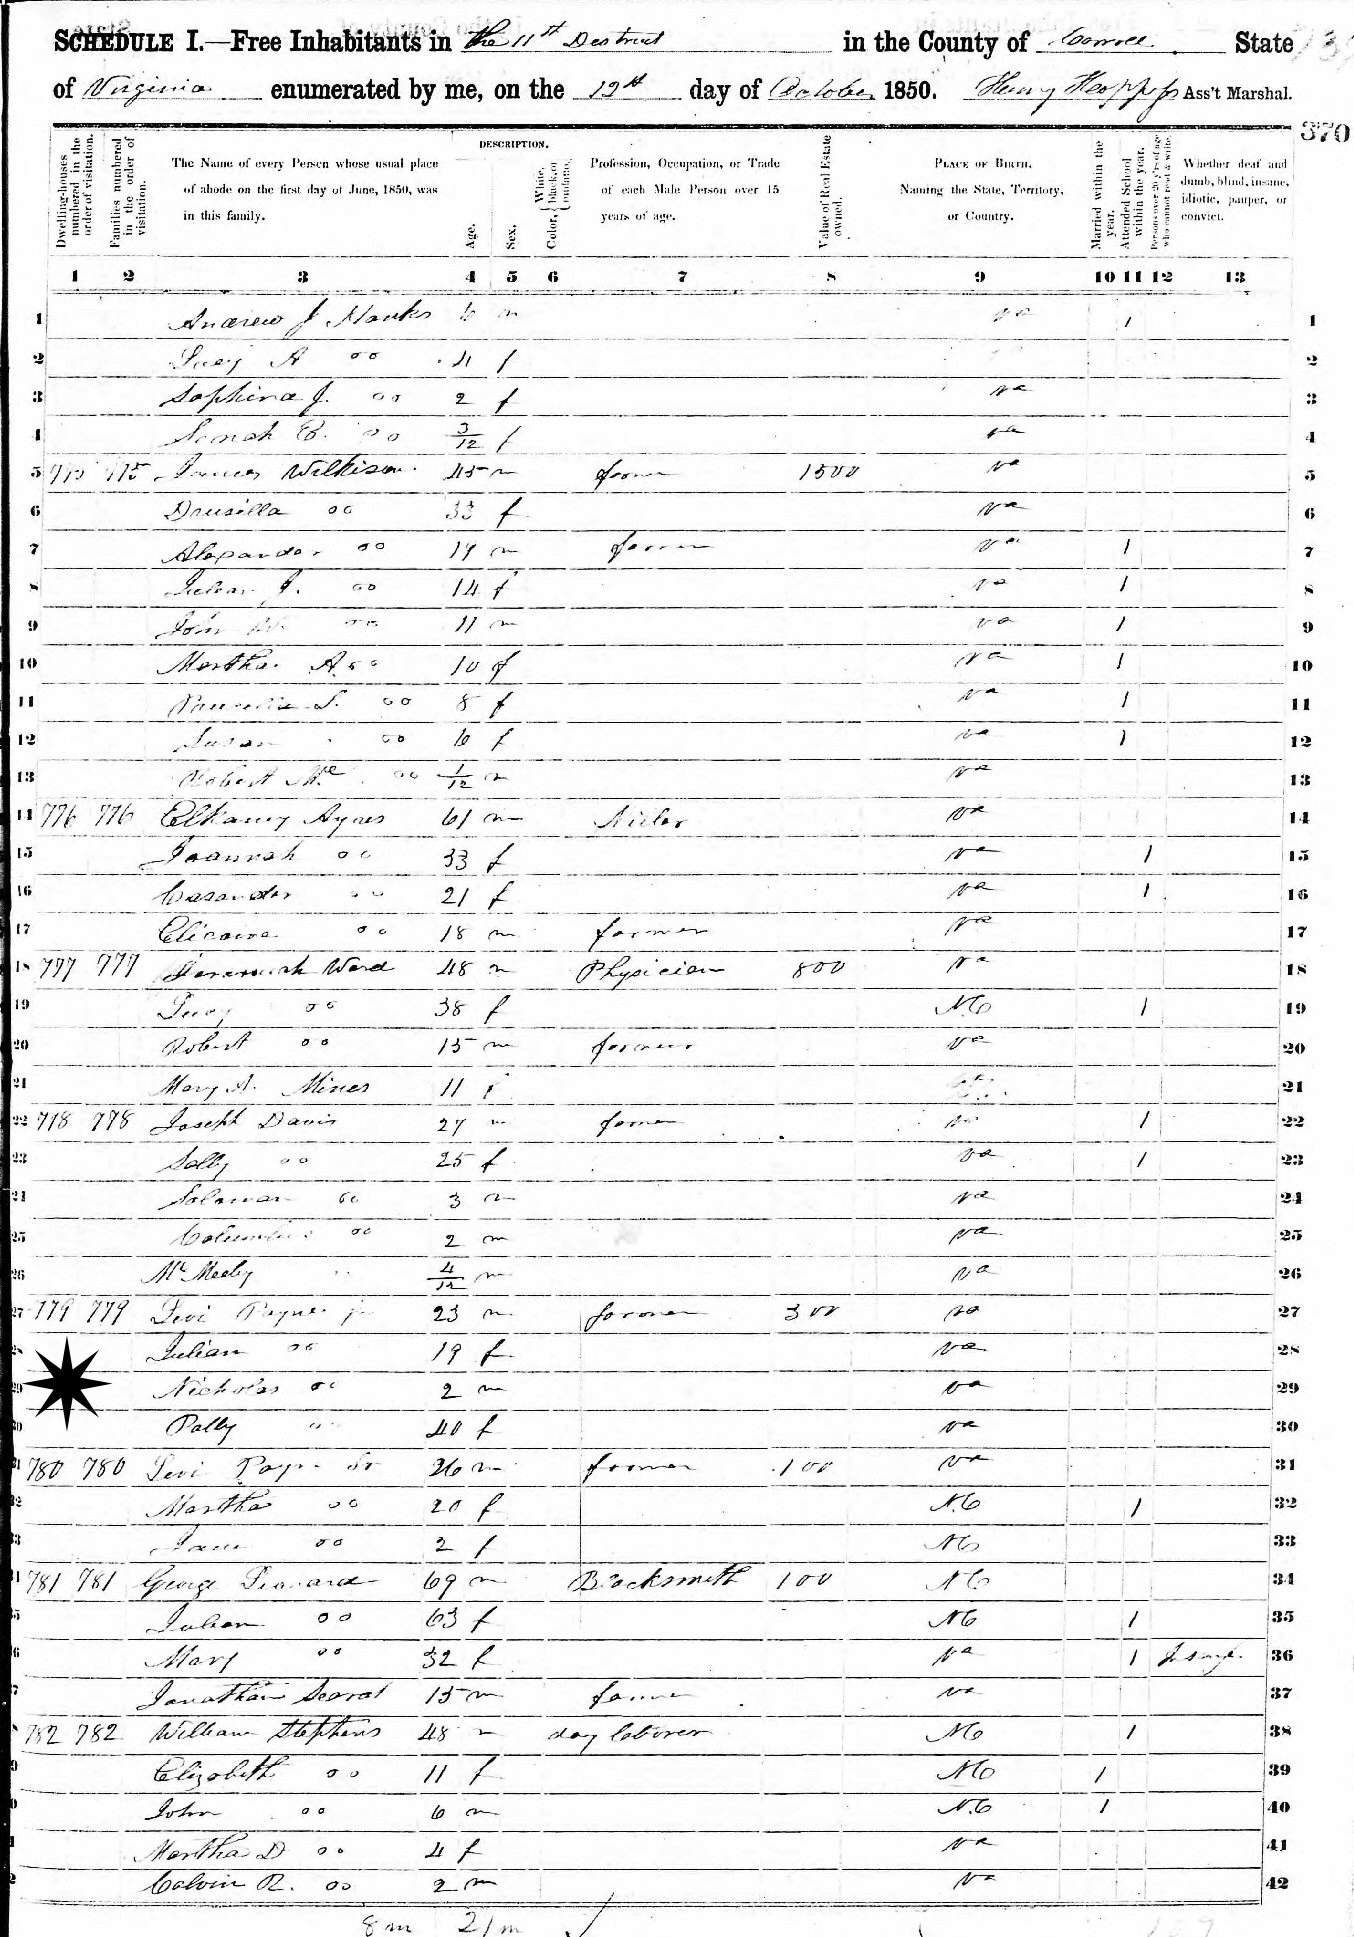 SCHEDULE I.—Free Inhabitants in the 11th District in the County of Carroll State
of Virginia enumerated by me, on the 12th day of October 1850. Henry Ass't Marshal.
370
Dwelling-houses numbered in the order of visitation.
Families numbered in the order of visitation.
The Name of every Person whose usual place of abode on the first day of June, 1850, was in this family.
DESCRIPTION.
Age.
Sex.
Color, { White, black, or mulatto.
Profession, Occupation, or Trade of each Male Person over 15 years of age.
Value of Real Estate owned.
PLACE OF BIRTH. Naming the State, Territory, or Country.
Married within the year.
Attended School within the year.
Persons over 20 y'rs of age who cannot read & write.
Whether deaf and dumb, blind, insane, idiotic, pauper, or convict.
1 2 3 4 5 6 7 8 9 10 11 12 13
1 Andrew J Hawks 6 m va 1 1
2 Lucy A oo 4 f 2
3 Sophina J. oo 2 f va 3
4 Sarah E. oo 3/12 f va 4
5 775 775 James Wilkison 45 m farmer 1500 va 5
6 Drusilla oo 33 f va 6
7 Alexander oo 19 m farmer va 1 7
8 Julian J. oo 14 f va 1 8
9 John W. oo 11 m va 1 9
10 Martha A oo 10 f va 1 10
11 S. oo 8 f va 1 11
12 Susan oo 6 f va 1 12
13 Robert Mc oo 1/12 m va 13
14 776 776 Elkany Ayres 61 m va 14
15 Joannah oo 33 f va 1 15
16 Casander oo 21 f va 1 16
17 oo 18 m farmer va 17
18 777 777 Jeremiah Ward 48 m Physician 800 va 18
19 Lucy oo 38 f NC 1 19
20 Robert oo 15 m farmer va 20
21 Mary A. Mines 11 f 21
22 778 778 Joseph Davis 27 m farmer va 1 22
23 Sally oo 25 f va 1 23
24 Soloman oo 3 m va 24
25 Columbus oo 2 m va 25
26 McMeeley 4/12 m va 26
27 779 779 Levi Payne jr 23 m farmer 300 va 27
28 Julian oo 19 f va 28
29 Nicholas oo 2 m va 29
30 Polly oo 40 f va 30
31 780 780 Levi Payne Sr 26 m farmer 100 va 31
32 Martha oo 20 f N.C 1 32
33 Jane oo 2 f NC 33
34 781 781 George Leonard 69 m Blacksmith 100 NC 34
35 Julian oo 63 f NC 1 35
36 Mary oo 32 f va 1 Insane. 36
37 Jonathan 15 m farmer va 37
38 782 782 William Stephens 48 m day laborer NC 1 38
39 Elizabeth oo 11 f NC 1 39
40 John oo 6 m N.C 1 40
41 Martha D oo 4 f va 41
42 Calvin R. oo 2 m va 42
8 m 21 m